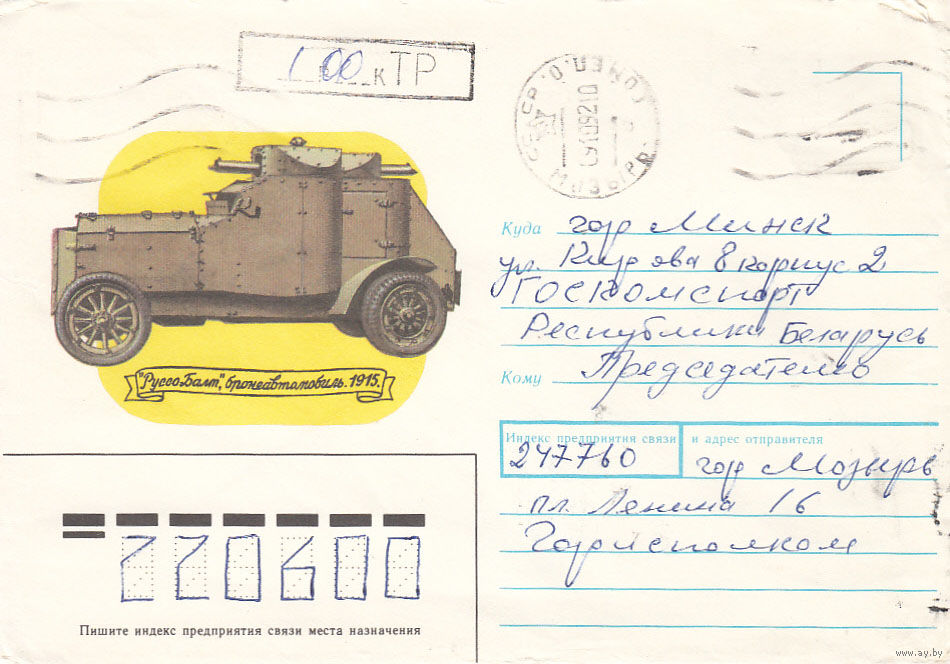 1 00 к ТР
СССР
091092 10
МОЗЫРЬ
"Руссо-Балт", бронеавтомобиль. 1915.
Куда гор Минск
ул. Кирова 8 корпус 2
Госкомспорт
Республики Беларусь
Кому Председателю
Индекс предприятия связи и адрес отправителя
247760 гор Мозырь
пл. Ленина 16
Горисполком
220600
Пишите индекс предприятия связи места назначения
www.ay.by